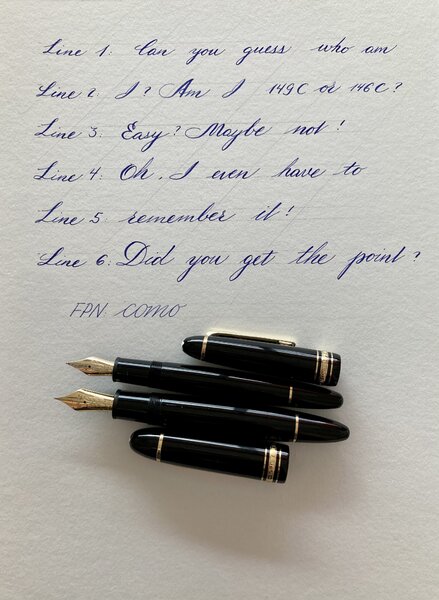 Line 1: Can you guess who am
Line 2: I? Am I 149C or 146C?
Line 3: Easy? Maybe not!
Line 4: Oh, I even have to
Line 5: remember it!
Line 6: Did you get the point?
FPN: como